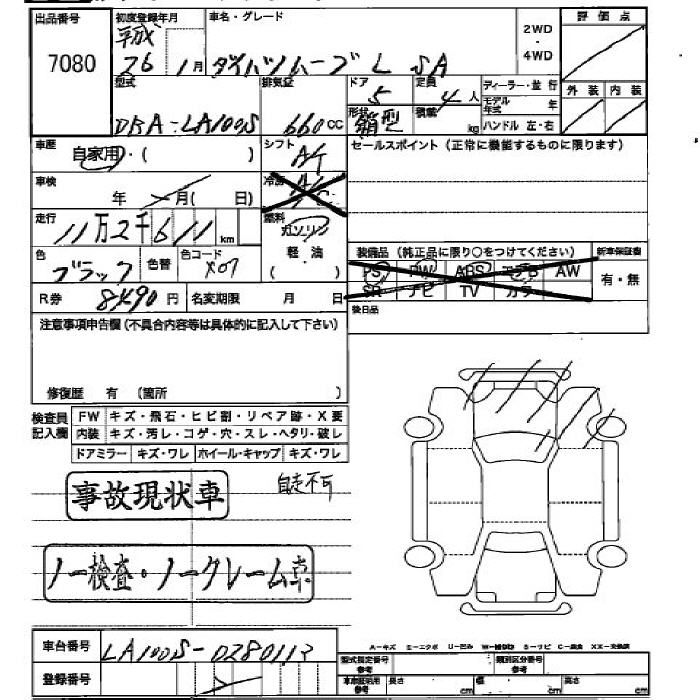 出品番号
7080
初度登録年月
平成
26 1月
車名・グレード
ダイハツムーブ L SA
2WD
・
4WD
評価点
外装 内装
型式
DBA-LA100S
排気量
660cc
ドア
5
定員
4人
形状
箱型
積載
kg
ディーラー・並行
モデル年式 年
ハンドル 左・右
車歴
自家用・( )
シフト
A/T
セールスポイント (正常に機能するものに限ります)
車検
年 月( 日)
冷房
A/C
走行
11万2千611km
燃料
ガソリン
軽・油
( )
色
ブラック
色替
色コード
X07
装備品 (純正品に限り○をつけてください)
PS PW ABS エアB AW
SR ナビ TV カワ
新車保証書
有・無
R券 8490円
名変期限 月 日
後日品
注意事項申告欄(不具合内容等は具体的に記入して下さい)
修復歴 有 (箇所 )
検査員記入欄
FW キズ・飛石・ヒビ割・リペア跡・X要
内装 キズ・汚レ・コゲ・穴・スレ・ヘタリ・破レ
ドアミラー キズ・ワレ ホイール・キャップ キズ・ワレ
事故現状車
自走不可
ノー検査・ノークレーム
車台番号
LA100S-0280113
登録番号
A-キズ E-エクボ U-凹み
型式指定番号
類別区分番号
車庫証明用参考
長さ cm
幅参考 cm
高さ参考 cm